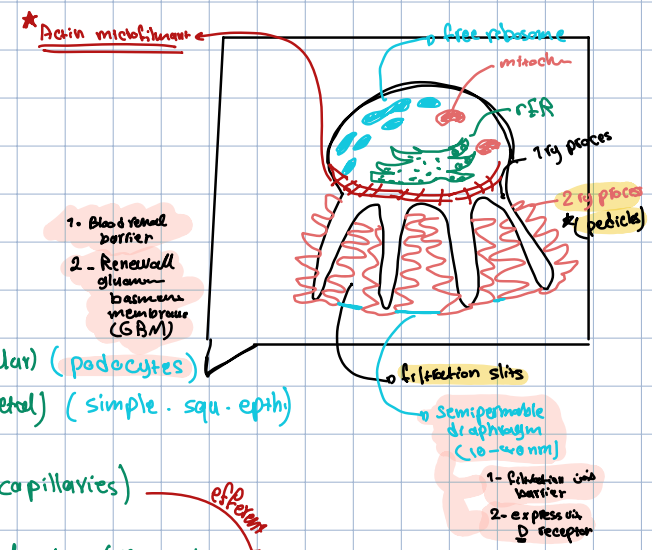 * Actin microfilment
free ribosome
mitoch
rER
1 ry proces
2 ry proces
* ( pedicles )
1- Blood renal
barrier
2- Renewall
glumm
basmens
membrane
(GBM)
lar) ( podocytes )
etal) ( simple . squ . epth. )
filtration slits
semipermable
diaphragm
(10-40nm)
1- filtration
barrier
2- express
D receptor
capillaries)
efferent